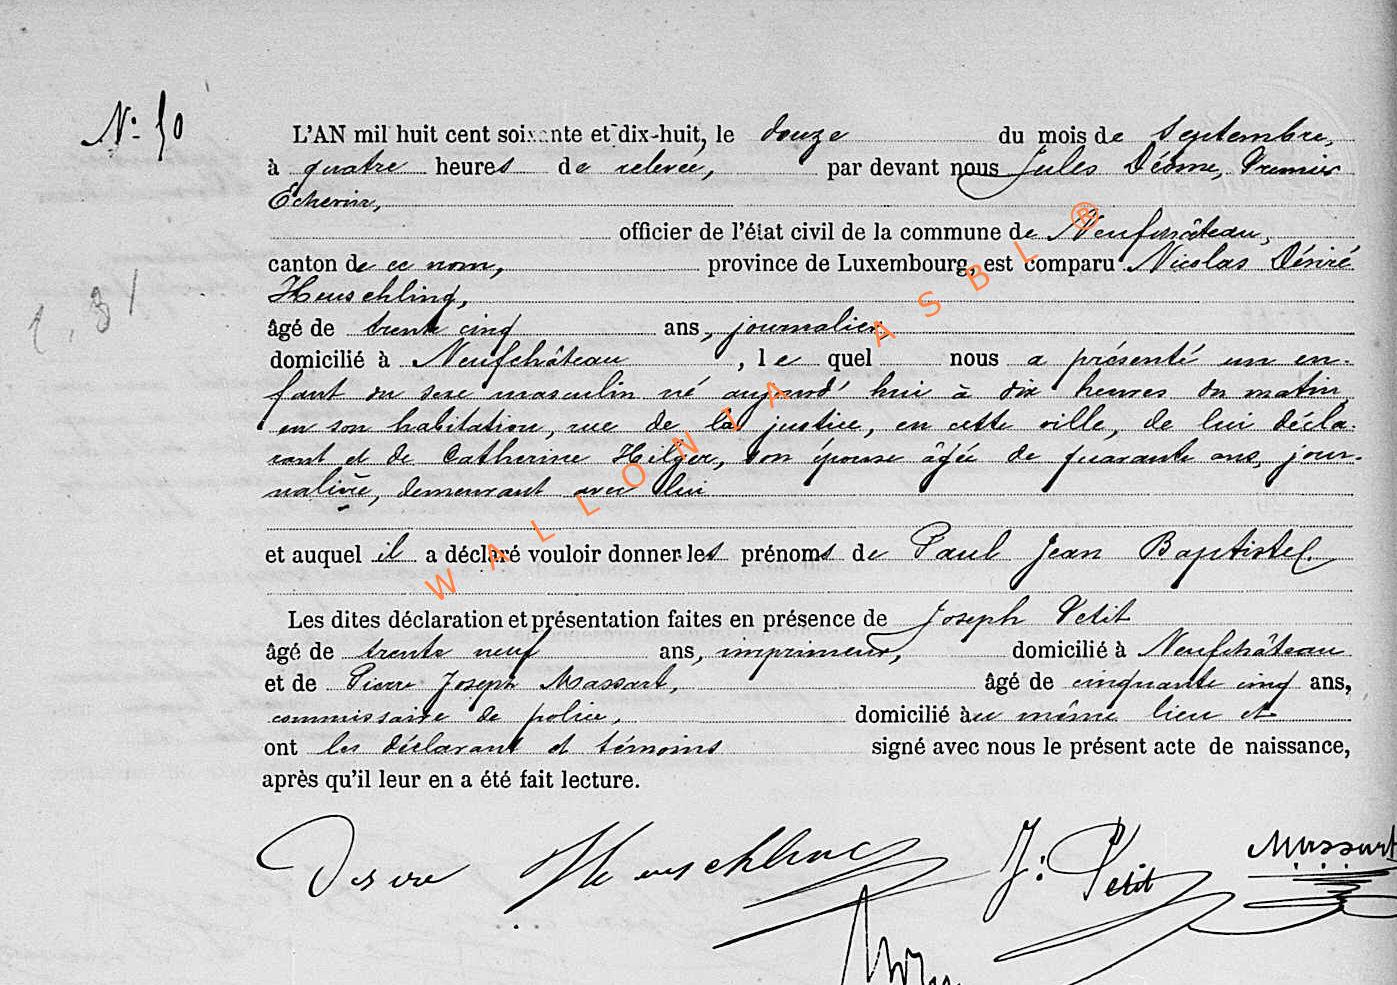 N° 50
L'AN mil huit cent soixante et dix-huit, le douze du mois de Septembre,
à quatre heures de relevée, par devant nous Jules Déome, Premier
Echevin,
officier de l'état civil de la commune de Neufchâteau,
canton de ce nom, province de Luxembourg, est comparu Nicolas Désiré
Heuschling,
âgé de trente cinq ans, journalier
domicilié à Neufchâteau, le quel nous a présenté un en-
fant du sexe masculin né aujourd'hui à dix heures du matin,
en son habitation, rue de la justice, en cette ville, de lui décla-
rant et de Catherine Hilger, son épouse âgée de quarante ans, jour-
nalière, demeurant avec lui
et auquel il a déclaré vouloir donner les prénoms de Paul Jean Baptiste.
Les dites déclaration et présentation faites en présence de Joseph Petit
âgé de trente neuf ans, imprimeur, domicilié à Neufchâteau
et de Pierre Joseph Massart, âgé de cinquante cinq ans,
commissaire de police, domicilié au même lieu et
ont les déclarant et témoins signé avec nous le présent acte de naissance,
après qu'il leur en a été fait lecture.
Desire Heuschling J: Petit Massart
WALLONIA ASBL ®